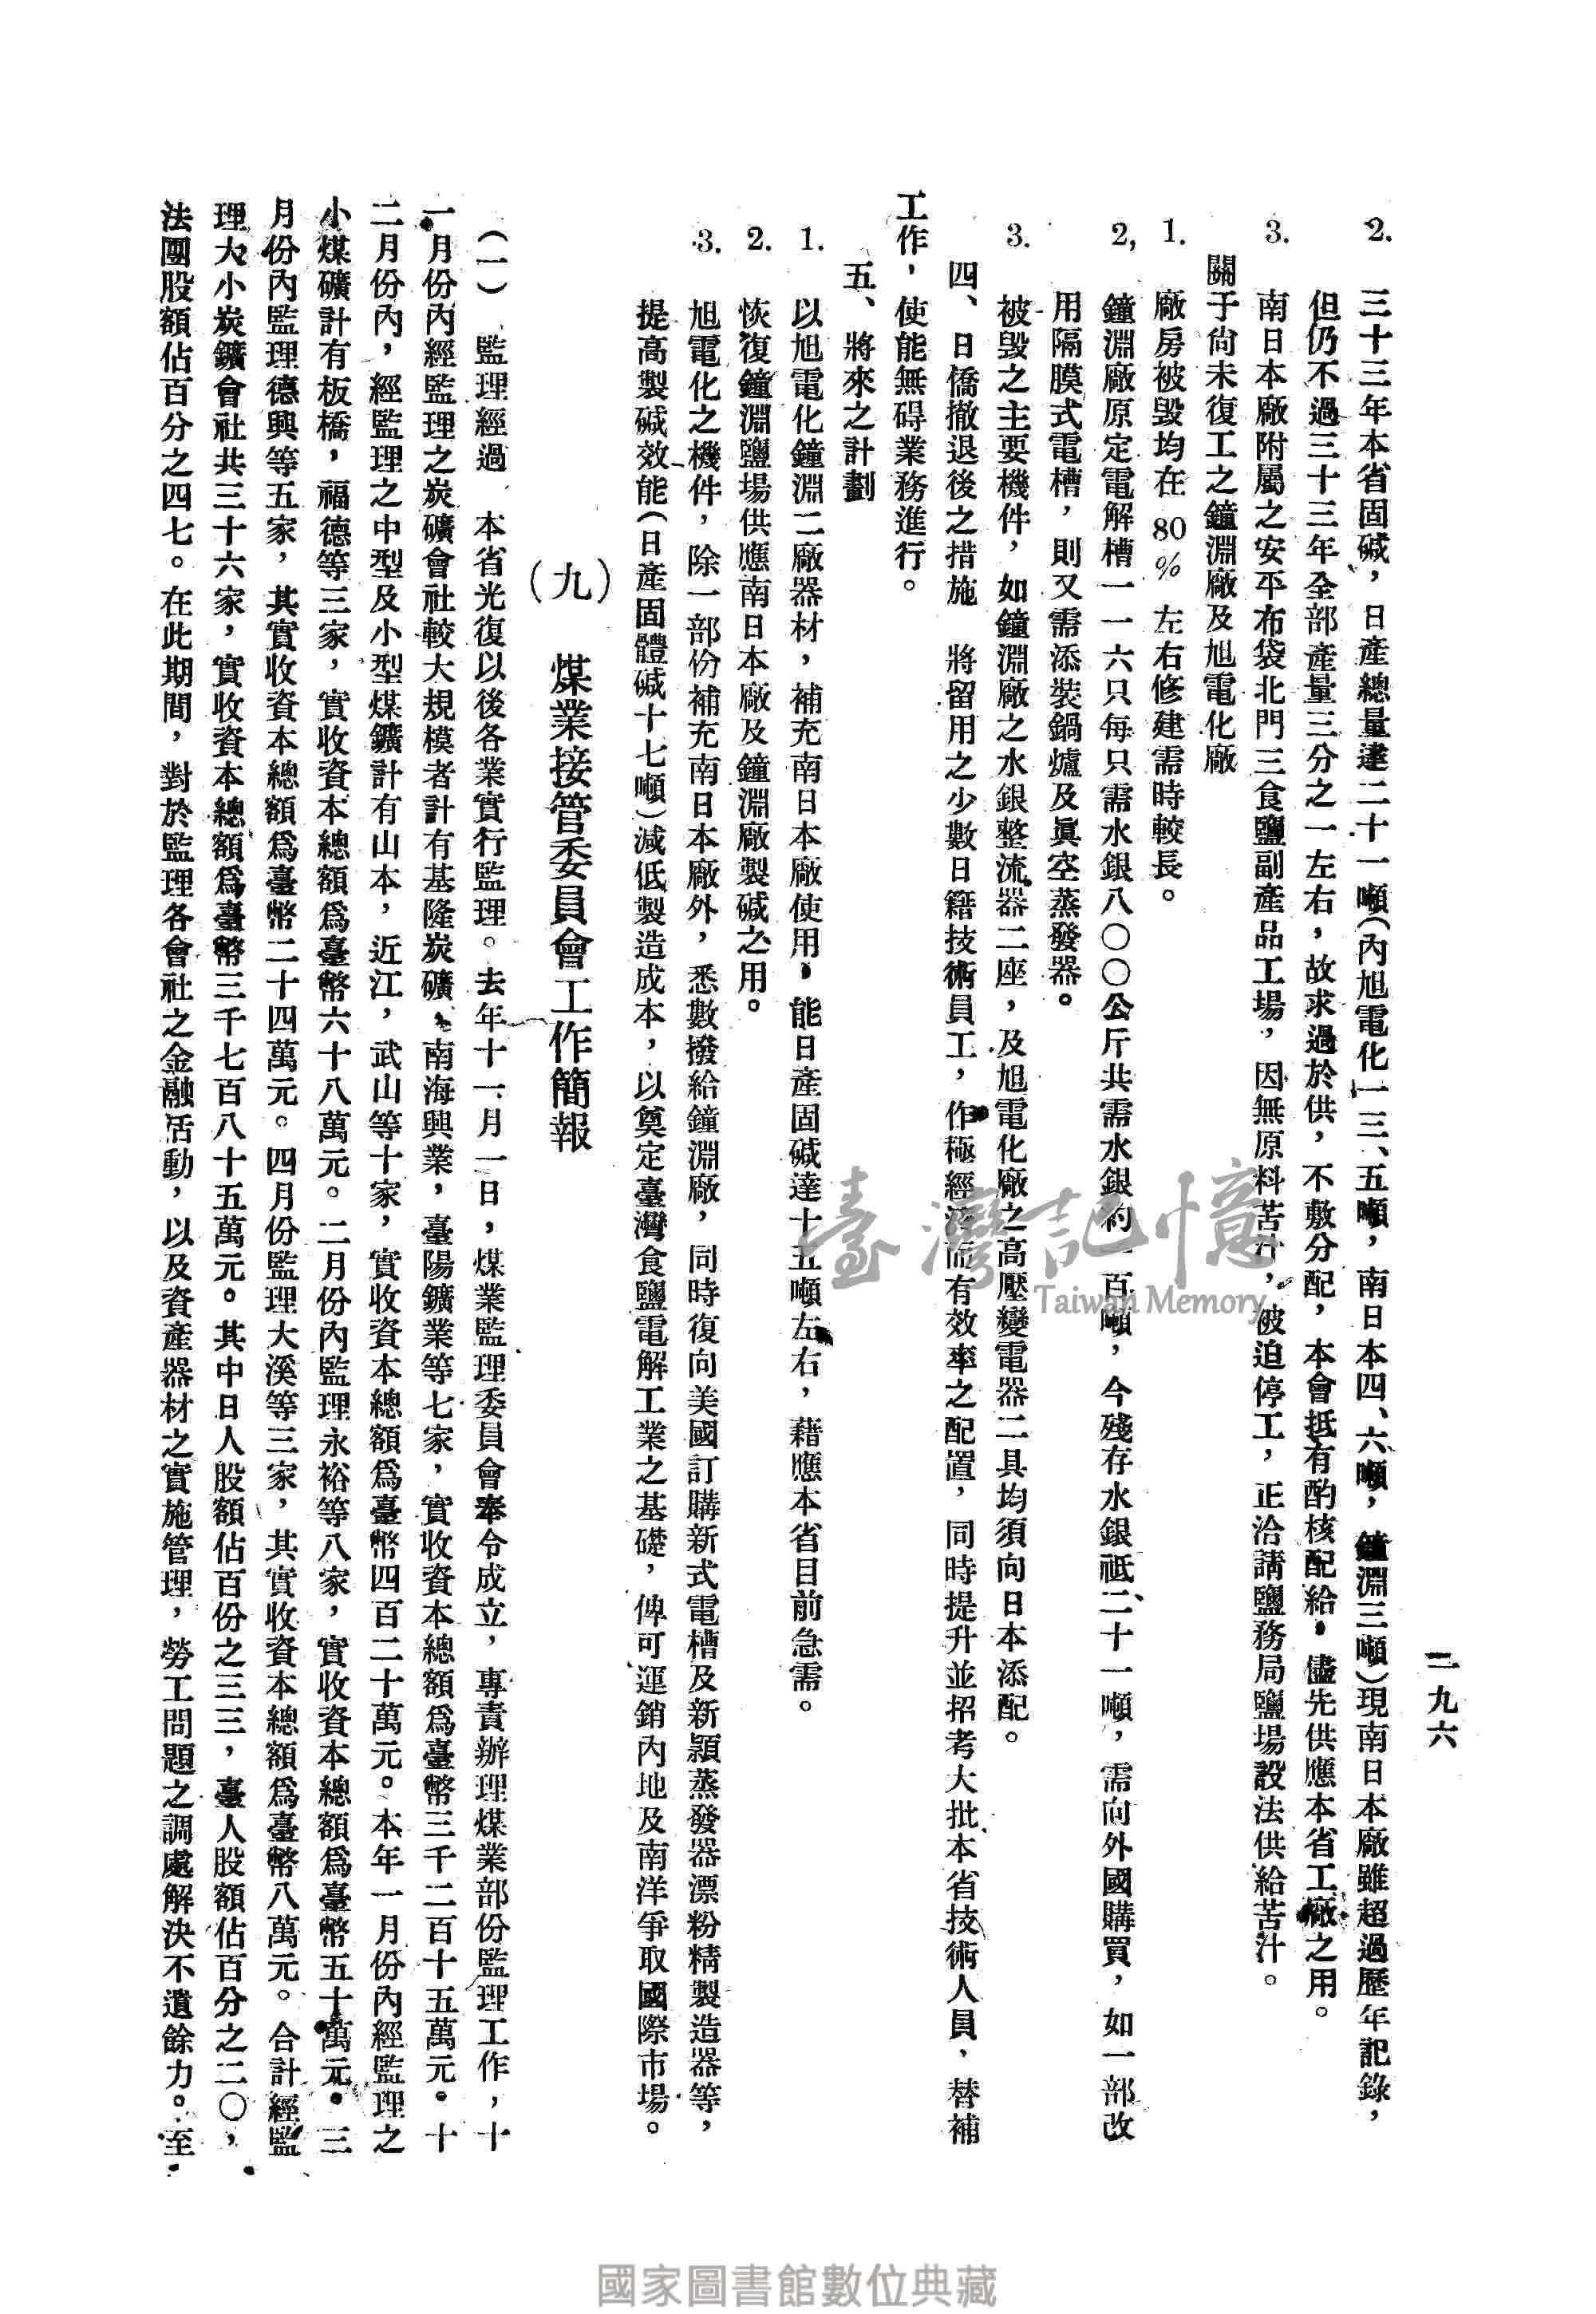 二九六
2. 三十三年本省固碱，日產總量達二十一噸（內旭電化一三、五噸，南日本四、六噸，鐘淵三噸）現南日本廠雖超過歷年記錄，
但仍不過三十三年全部產量三分之一左右，故求過於供，不敷分配，本會抵有酌核配給，儘先供應本省工廠之用。
3. 南日本廠附屬之安平布袋北門三食鹽副產品工場，因無原料苦汁，被迫停工，正洽請鹽務局鹽場設法供給苦汁。
關于尙未復工之鐘淵廠及旭電化廠
1. 廠房被毀均在80%左右修建需時較長。
2, 鐘淵廠原定電解槽一一六只每只需水銀八〇〇公斤共需水銀約一百噸，今殘存水銀祗二十一噸，需向外國購買，如一部改
用隔膜式電槽，則又需添裝鍋爐及眞空蒸發器。
3. 被毀之主要機件，如鐘淵廠之水銀整流器二座，及旭電化廠之高壓變電器二具均須向日本添配。
四、日僑撤退後之措施 將留用之少數日籍技術員工，作極經濟而有效率之配置，同時提升並招考大批本省技術人員，替補
工作，使能無碍業務進行。
五、將來之計劃
1. 以旭電化鐘淵二廠器材，補充南日本廠使用，能日產固碱達十五噸左右，藉應本省目前急需。
2. 恢復鐘淵鹽場供應南日本廠及鐘淵廠製碱之用。
3. 旭電化之機件，除一部份補充南日本廠外，悉數撥給鐘淵廠，同時復向美國訂購新式電槽及新穎蒸發器漂粉精製造器等，
提高製碱效能（日產固體碱十七噸）減低製造成本，以奠定臺灣食鹽電解工業之基礎，俾可運銷內地及南洋爭取國際市場。
（九） 煤業接管委員會工作簡報
（一）監理經過 本省光復以後各業實行監理。去年十一月一日，煤業監理委員會奉令成立，專責辦理煤業部份監理工作，十
一月份內經監理之炭礦會社較大規模者計有基隆炭礦，南海興業，臺陽鑛業等七家，實收資本總額爲臺幣三千二百十五萬元。十
二月份內，經監理之中型及小型煤鑛計有山本，近江，武山等十家，實收資本總額爲臺幣四百二十萬元。本年一月份內經監理之
小煤礦計有板橋，福德等三家，實收資本總額爲臺幣六十八萬元。二月份內監理永裕等八家，實收資本總額爲臺幣五十萬元。三
月份內監理德興等五家，其實收資本總額爲臺幣二十四萬元。四月份監理大溪等三家，其實收資本總額爲臺幣八萬元。合計經監
理大小炭鑛會社共三十六家，實收資本總額爲臺幣三千七百八十五萬元。其中日人股額佔百份之三三，臺人股額佔百分之二〇，
法團股額佔百分之四七。在此期間，對於監理各會社之金融活動，以及資產器材之實施管理，勞工問題之調處解決不遺餘力。至
臺灣記憶
Taiwan Memory
國家圖書館數位典藏